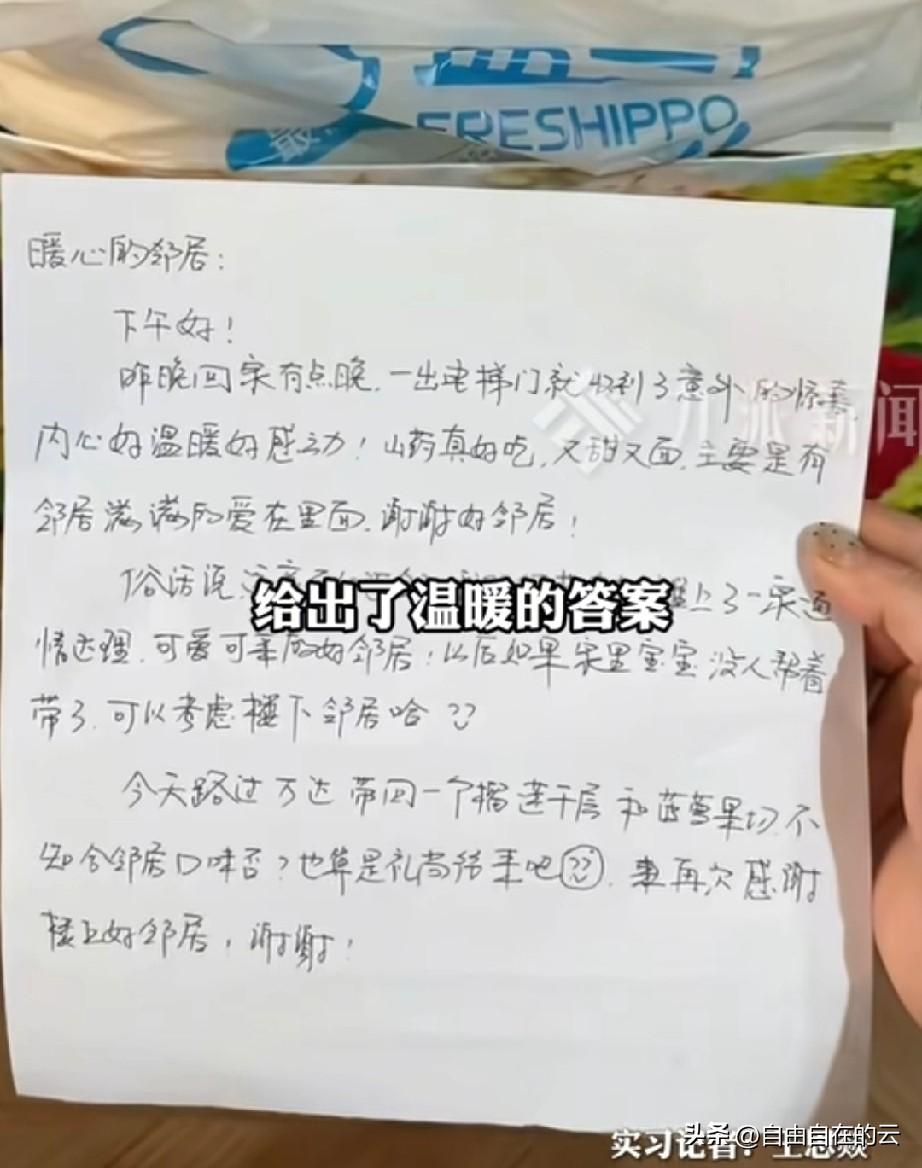 FRESHIPPO
暖心的邻居：
下午好！
昨晚回家有点晚，一出电梯门就收到了意外的惊喜
九派新闻
内心好温暖好感动！山药真好吃，又甜又面，主要是有
邻居满满的爱在里面，谢谢好邻居！
俗话说 上了一家通
给出了温暖的答案
情达理，可爱可亲的好邻居！以后如果家里宝宝没人帮着
带了，可以考虑楼下邻居哈
今天路过万达带回一个榴莲千层和菠萝果切，不
知合邻居口味否？也算是礼尚往来吧 再次感谢
楼上好邻居，谢谢！
实习记者：王思
头条@自由自在的云